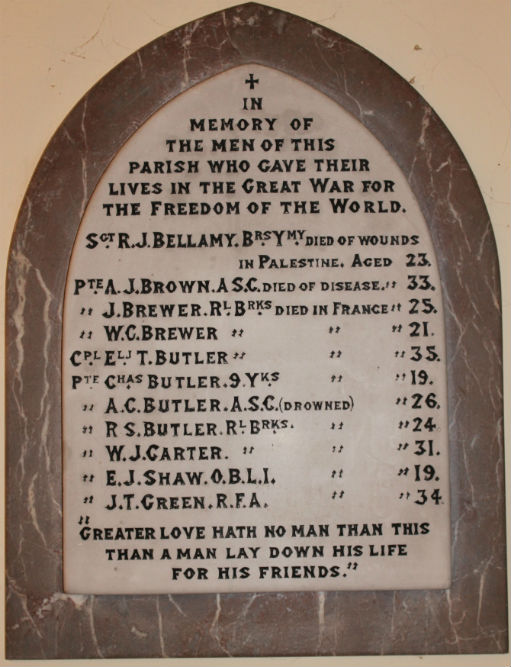 IN
MEMORY OF
THE MEN OF THIS
PARISH WHO GAVE THEIR
LIVES IN THE GREAT WAR FOR
THE FREEDOM OF THE WORLD.
SGT R.J. BELLAMY. BRS YMY DIED OF WOUNDS
IN PALESTINE. AGED 23.
PTE A.J. BROWN. A.S.C. DIED OF DISEASE. " 33.
" J. BREWER. RL BRKS DIED IN FRANCE " 25.
" W.C. BREWER " " " 21.
CPL ELJ T. BUTLER " " " 35.
PTE CHAS BUTLER. 9. YKS " " 19.
" A.C. BUTLER. A.S.C. (DROWNED) " 26.
" R S. BUTLER. RL BRKS. " " 24
" W.J. CARTER. " " " 31.
" E.J. SHAW. O.B.L.I. " " 19.
" J.T. GREEN. R.F.A. " " 34
"GREATER LOVE HATH NO MAN THAN THIS
THAN A MAN LAY DOWN HIS LIFE
FOR HIS FRIENDS."